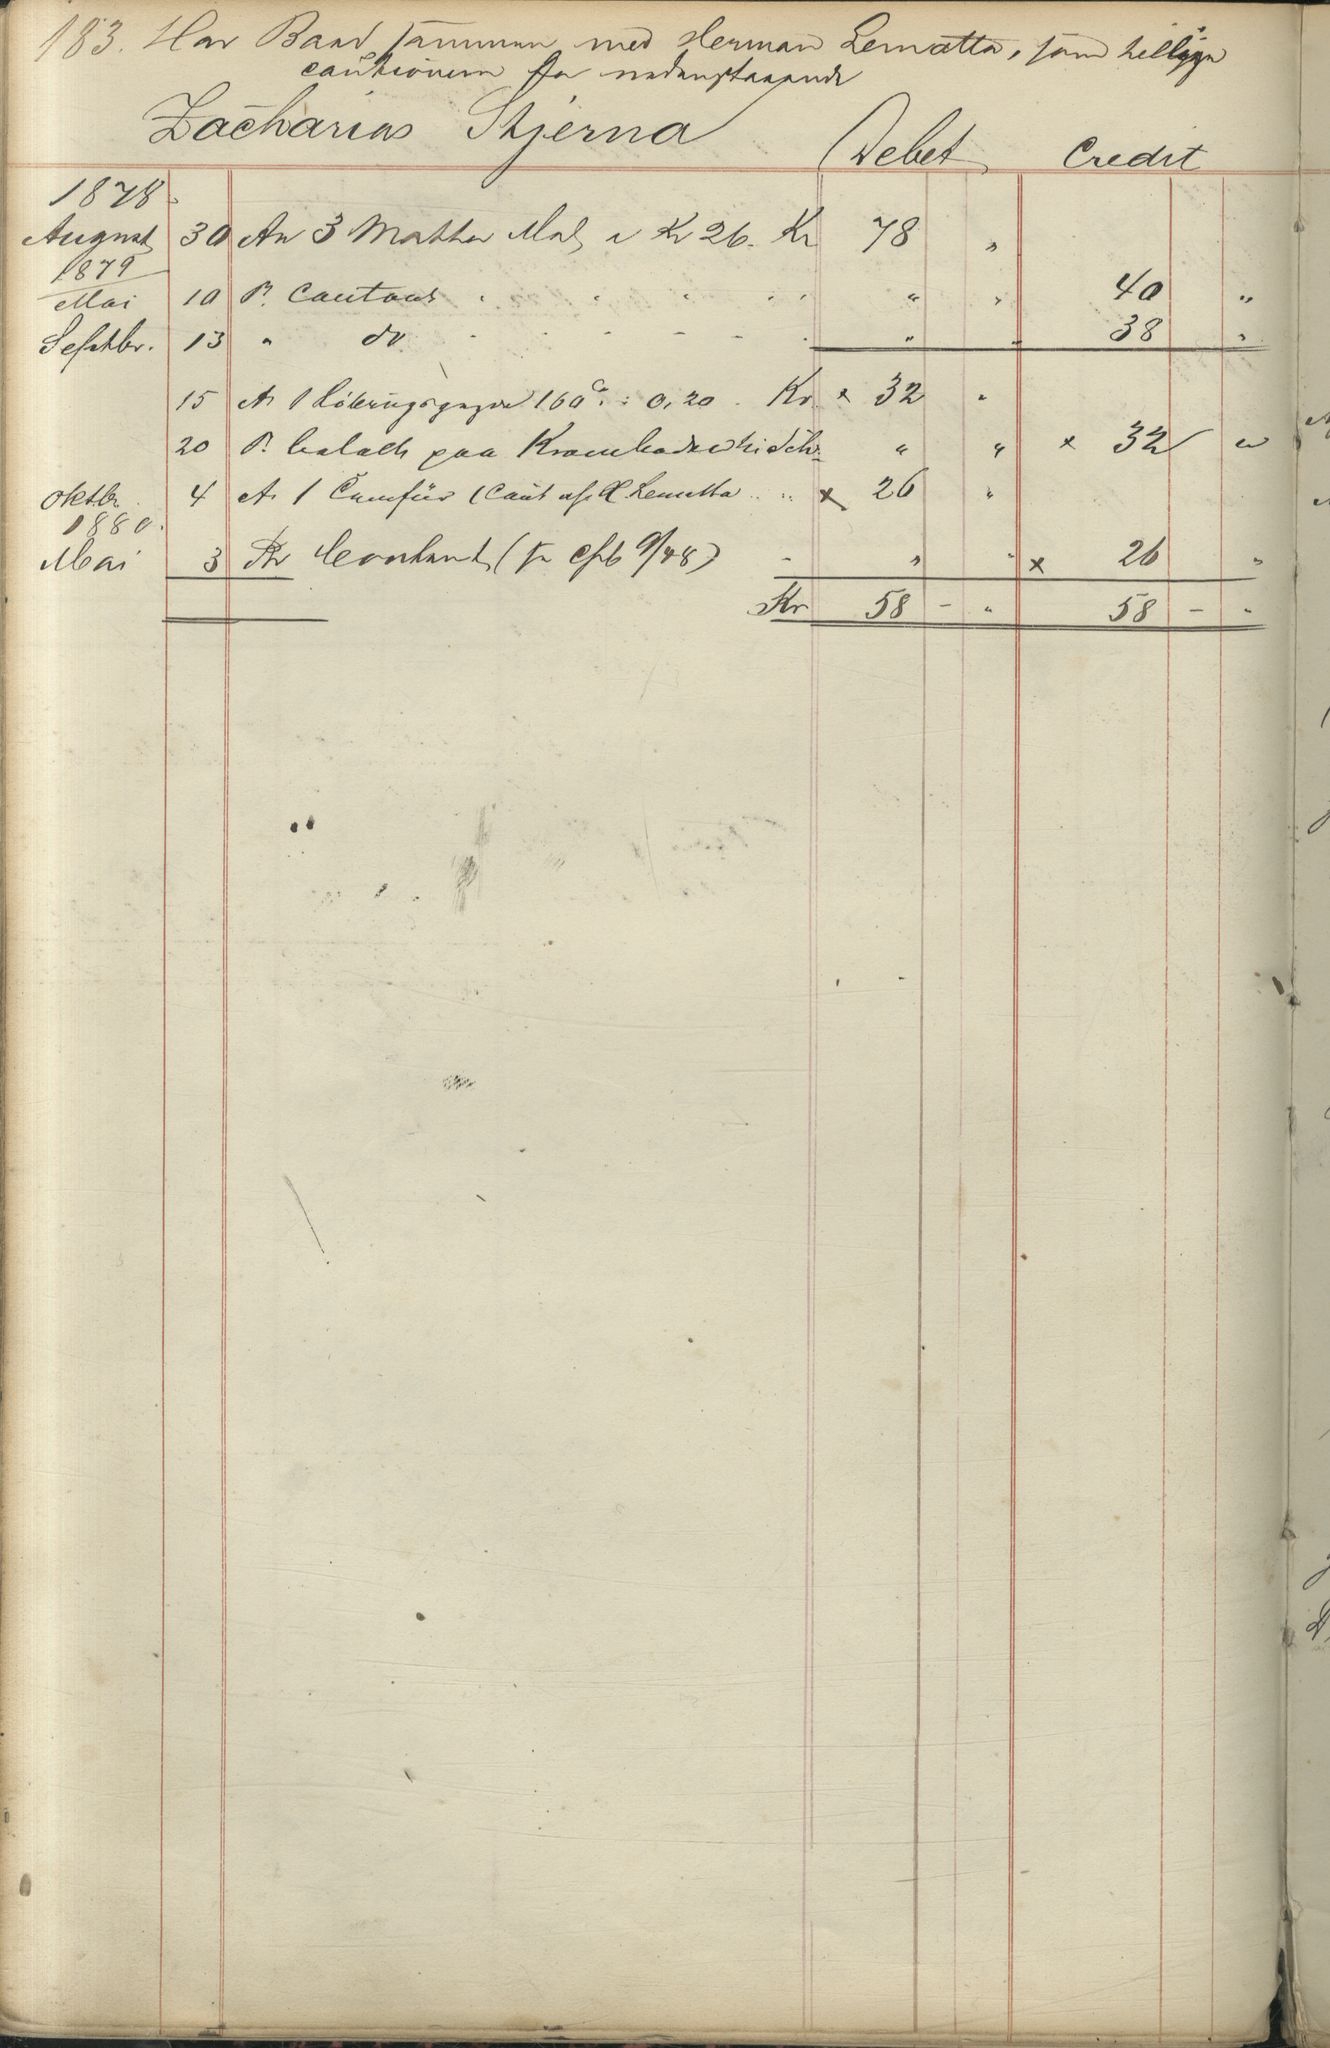 183. Har Baad sammen med Herman Lematta, som tillige
cautionerer for nedenstaaende
Zacharias Stjerna Debet Credit
1878
August 30 An 3 Matter Mel a Kr 26. Kr 78 "
1879
Mai 10 Pr. Contant " " 40 "
Septbr. 13 " do " " 38 "
15 An 1 160 : 0,20. Kr × 32 "
20 Pr. betalt paa " " × 32 "
Oktbr. 4 An 1 (Caut af H Lematta × 26 "
1880.
Mai 3 Pr Contant " " × 26 "
Kr 58 - " 58 - "